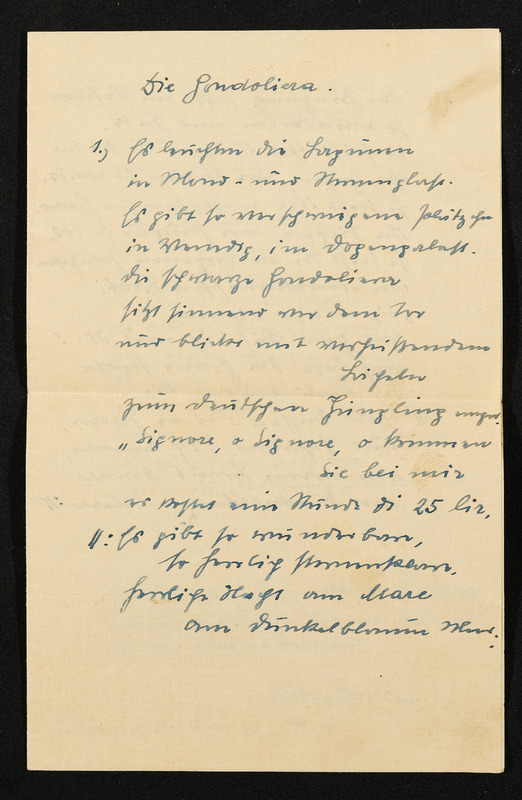 Die Gondoliera.
1.) Es leuchten die Lagunen
in Mond- und Sternenglast.
Es gibt so verschwiegene Plätzchen
in Venedig, im Dogenpalast.
die schwarze Gondoliera
sitzt sinnend vor dem Tor
und blickt mit verheißendem
Lächeln
zum deutschen Jüngling empor.
"Signore, o Signore, o kommen
Sie bei mir
es kostet eine Stunde di 25 lir,
||: Es gibt so wunderbare,
so herrlich sternenklare,
herrliche Nacht am Mare
am dunkelblauen Meer. :